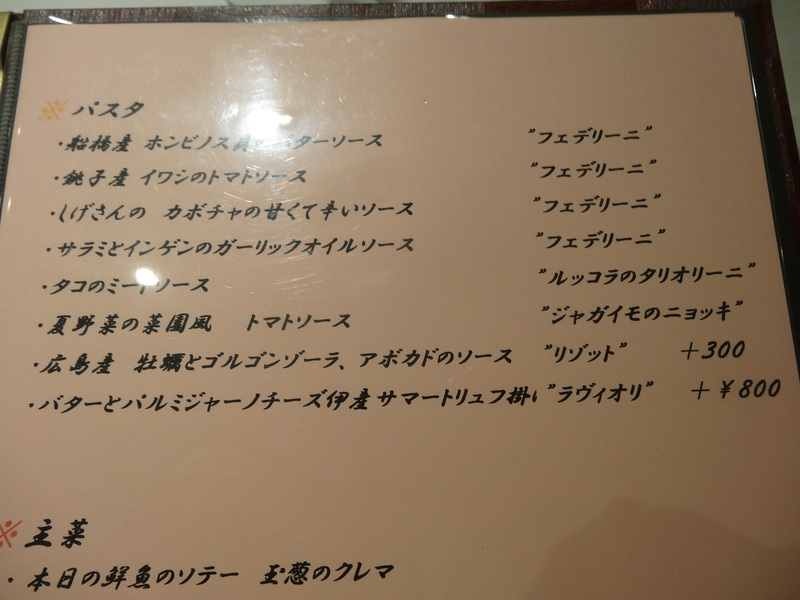 ※ パスタ
・船橋産 ホンビノス貝とバターソース ”フェデリーニ”
・銚子産 イワシのトマトソース ”フェデリーニ”
・しげさんの カボチャの甘くて辛いソース ”フェデリーニ”
・サラミとインゲンのガーリックオイルソース ”フェデリーニ”
・タコのミートソース ”ルッコラのタリオリーニ”
・夏野菜の菜園風 トマトソース ”ジャガイモのニョッキ”
・広島産 牡蠣とゴルゴンゾーラ、アボカドのソース ”リゾット” ＋300
・バターとパルミジャーノチーズ伊産サマートリュフ掛い ”ラヴィオリ” ＋￥800
※ 主菜
・本日の鮮魚のソテー 玉葱のクレマ